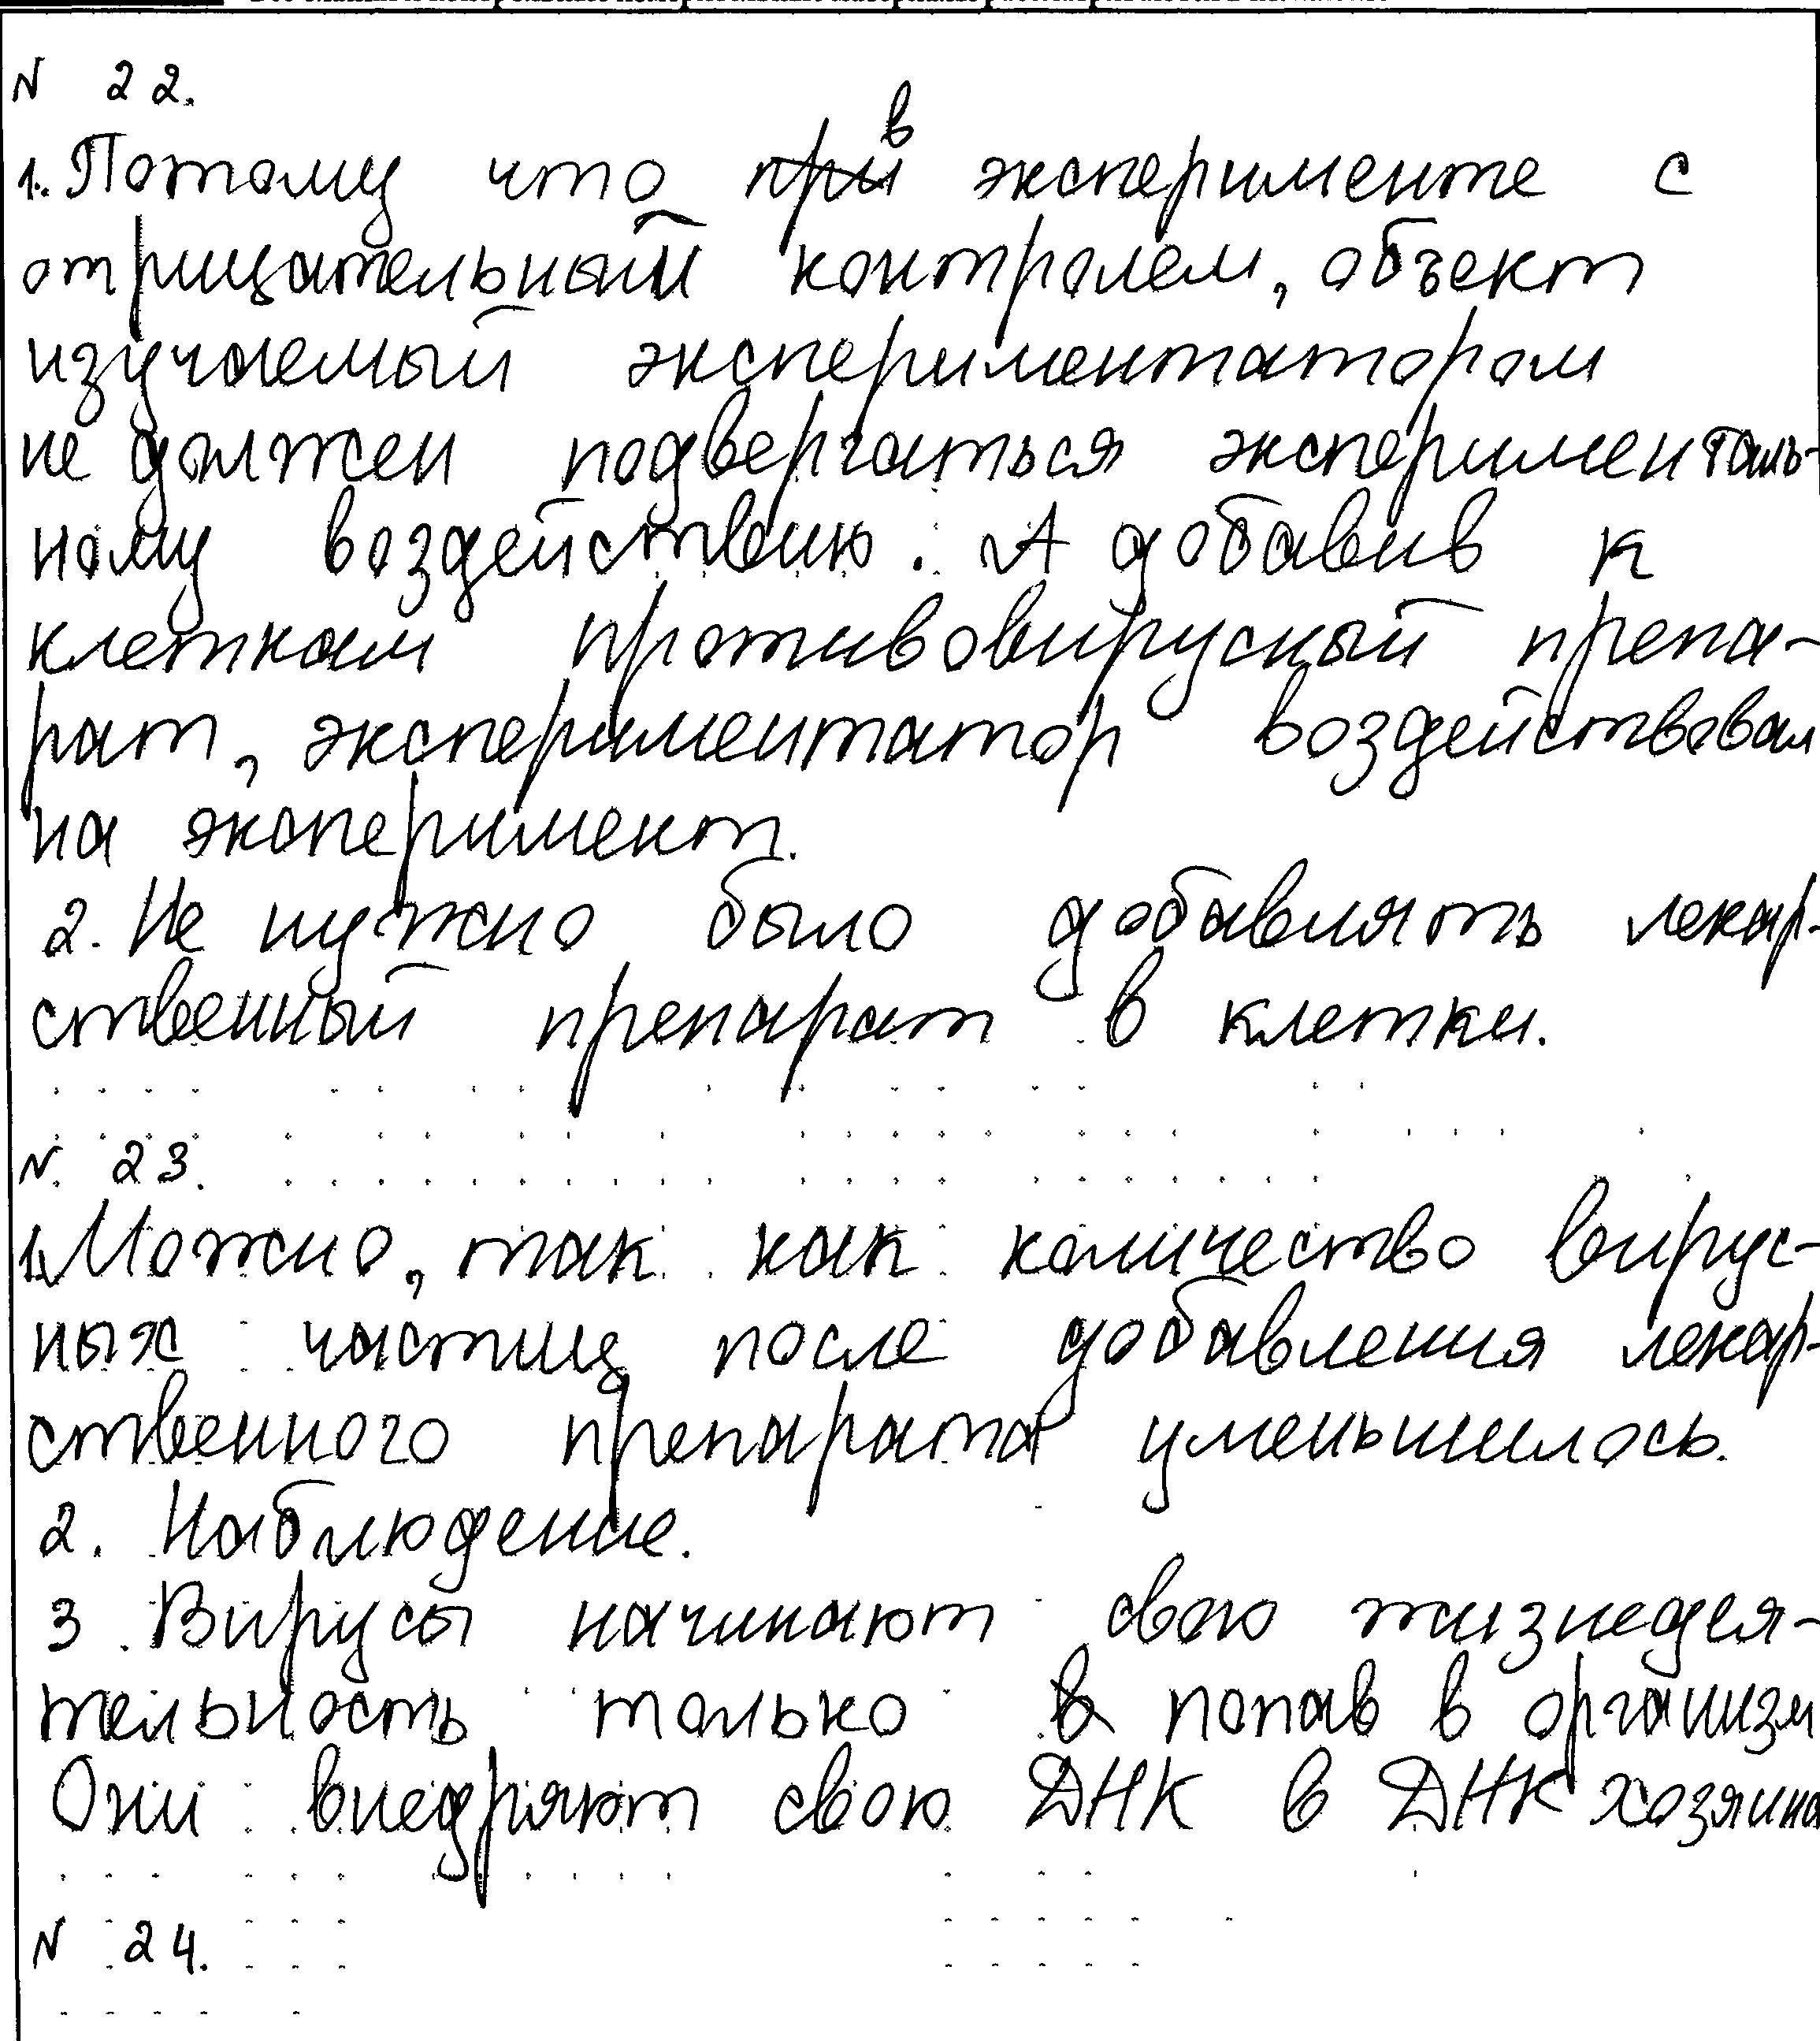 N 22.
1. Потому что в эксперименте с
отрицательный контролем, объект
изучаемый экспериментатором
не должен подвергаться эксперименталь-
ному воздействию. А добавив к
клеткам противовирусный препа-
рат, экспериментатор воздействовал
на эксперимент.
2. Не нужно было добавлять лекар-
ственный препарат в клетки.
N. 23.
1. Можно, так как количество вирус-
ных частиц после добавления лекар-
ственного препарата уменьшилось.
2. Наблюдение.
3. Вирусы начинают свою жизнедея-
тельность только попав в организм
Они внедряют свою ДНК в ДНК хозяина
N 24.